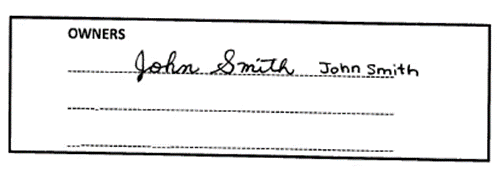 OWNERS
John Smith John Smith